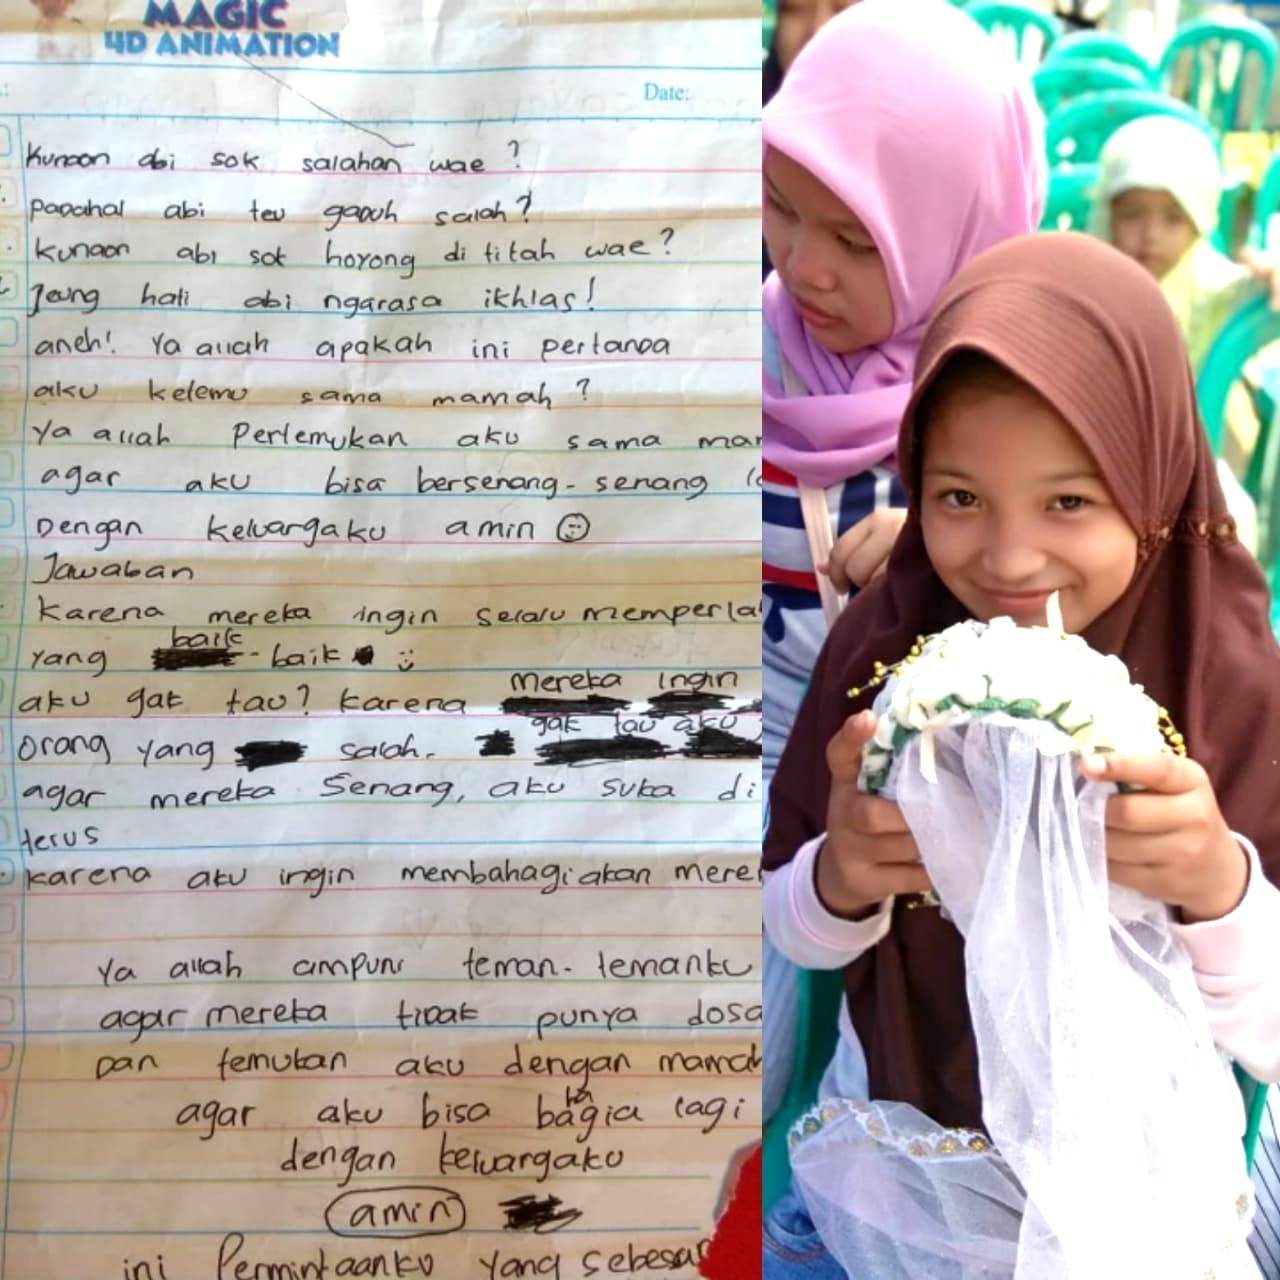 MAGIC
4D ANIMATION
Date:
Kunaon abi sok salahan wae ?
Padahal abi teu gaduh salah ?
kunaon abi sok hoyong di titah wae ?
Jeung hati abi ngarasa ikhlas !
aneh! Ya allah apakah ini pertanda
aku ketemu sama mamah ?
Ya allah Pertemukan aku sama
agar aku bisa bersenang - senang
Dengan keluargaku amin
Jawaban
Karena mereka ingin selalu
yang baik - baik
aku gak tau? karena mereka ingin
gak tau aku
orang yang salah.
agar mereka senang, aku suka di
terus
karena aku ingin membahagiakan
ya allah ampuni teman - temanku
agar mereka tidak punya
Dan temukan aku dengan
agar aku bisa bahagia lagi
dengan keluargaku
amin
ini Permintaanku yang